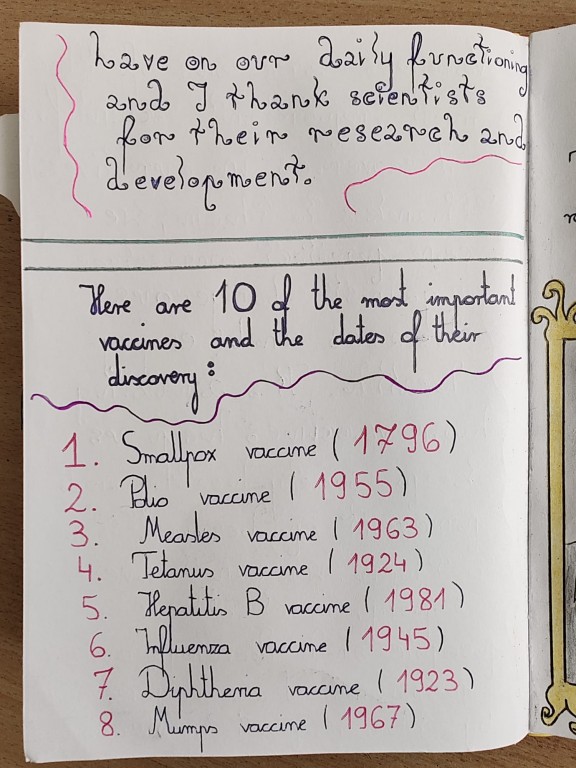 have on our daily functioning
and I thank scientists
for their research and
development.
Here are 10 of the most important
vaccines and the dates of their
discovery:
1. Smallpox vaccine (1796)
2. Polio vaccine (1955)
3. Measles vaccine (1963)
4. Tetanus vaccine (1924)
5. Hepatitis B vaccine (1981)
6. Influenza vaccine (1945)
7. Diphtheria vaccine (1923)
8. Mumps vaccine (1967)